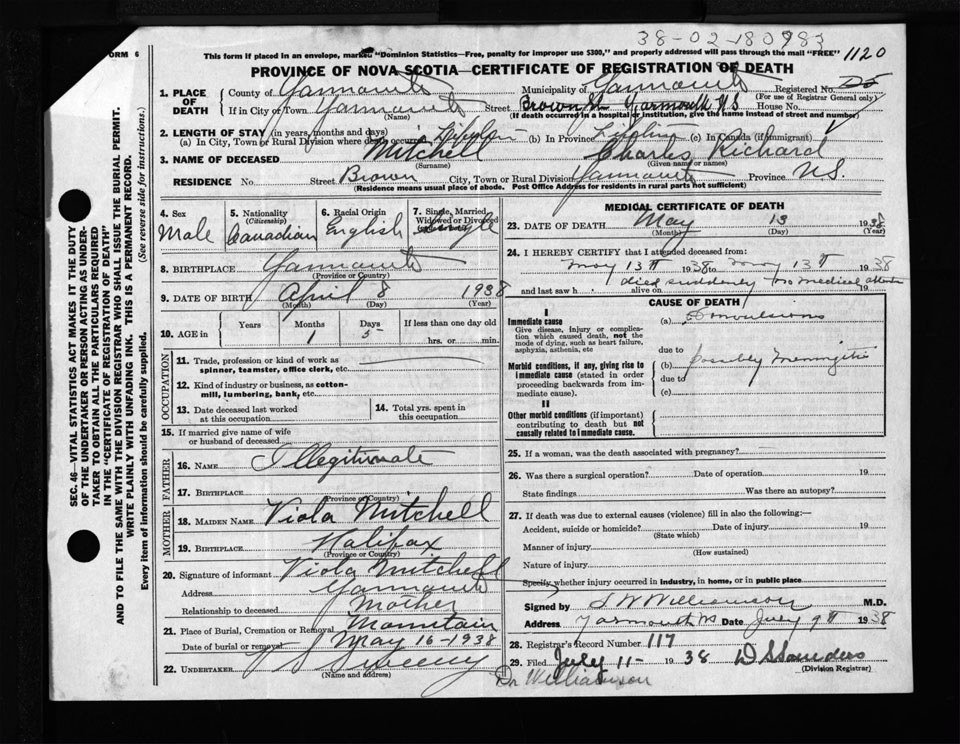 38-02-180983
FORM 6
This form if placed in an envelope, marked "Dominion Statistics—Free, penalty for improper use $300," and properly addressed will pass through the mail "FREE"
1120
PROVINCE OF NOVA SCOTIA—CERTIFICATE OF REGISTRATION OF DEATH
SEC. 46—VITAL STATISTICS ACT MAKES IT THE DUTY
OF THE UNDERTAKER OR PERSON ACTING AS UNDER-
TAKER TO OBTAIN ALL THE PARTICULARS REQUIRED
IN THE "CERTIFICATE OF REGISTRATION OF DEATH"
AND TO FILE THE SAME WITH THE DIVISION REGISTRAR WHO SHALL ISSUE THE BURIAL PERMIT.
WRITE PLAINLY WITH UNFADING INK. THIS IS A PERMANENT RECORD.
Every item of information should be carefully supplied. (See reverse side for instructions.)
1. PLACE OF DEATH
County of Yarmouth Municipality of Yarmouth Registered No.
(For use of Registrar General only)
If in City or Town Yarmouth Street Brown St Yarmouth N S House No.
(Name) (If death occurred in a hospital or institution, give the name instead of street and number)
2. LENGTH OF STAY (in years, months and days)
(a) In City, Town or Rural Division where death occurred Lifetime (b) In Province Lifetime (c) In Canada (if immigrant)
3. NAME OF DECEASED Mitchell Charles Richard
(Surname) (Given name or names)
RESIDENCE No. Street Brown City, Town or Rural Division Yarmouth Province N.S.
(Residence means usual place of abode. Post Office Address for residents in rural parts not sufficient)
4. Sex Male
5. Nationality (Citizenship) Canadian
6. Racial Origin English
7. Single, Married, Widowed or Divorced Single
8. BIRTHPLACE Yarmouth
(Province or Country)
9. DATE OF BIRTH April 8 1938
(Month) (Day) (Year)
10. AGE in Years Months Days If less than one day old
1 5 hrs. or min.
OCCUPATION
11. Trade, profession or kind of work as
spinner, teamster, office clerk, etc.
12. Kind of industry or business, as cotton-
mill, lumbering, bank, etc.
13. Date deceased last worked
at this occupation
14. Total yrs. spent in
this occupation
15. If married give name of wife
or husband of deceased
FATHER
16. NAME Illegitimate
17. BIRTHPLACE
(Province or Country)
MOTHER
18. MAIDEN NAME Viola Mitchell
19. BIRTHPLACE Halifax
(Province or Country)
20. Signature of informant Viola Mitchell
Address Yarmouth
Relationship to deceased Mother
21. Place of Burial, Cremation or Removal Mountain
Date of burial or removal May 16-1938
22. UNDERTAKER V S Sweeny
(Name and address)
MEDICAL CERTIFICATE OF DEATH
23. DATE OF DEATH May 13 1938
(Month) (Day) (Year)
24. I HEREBY CERTIFY that I attended deceased from:
May 13th 1938 to May 13th 1938
and last saw h alive on died suddenly no medical attention 19
CAUSE OF DEATH
I
Immediate cause
Give disease, injury or complica-
tion which caused death, not the
mode of dying, such as heart failure,
asphyxia, asthenia, etc
(a) Convulsions
due to
Morbid conditions, if any, giving rise to
immediate cause (stated in order
proceeding backwards from im-
mediate cause).
(b) possibly meningitis
due to
(c)
II
Other morbid conditions (if important)
contributing to death but not
causally related to immediate cause.
25. If a woman, was the death associated with pregnancy?
26. Was there a surgical operation? Date of operation 19
State findings Was there an autopsy?
27. If death was due to external causes (violence) fill in also the following:—
Accident, suicide or homicide? Date of injury 19
(State which)
Manner of injury
(How sustained)
Nature of injury
Specify whether injury occurred in industry, in home, or in public place
Signed by S W Williamson M.D.
Address Yarmouth NS Date July 9th 1938
28. Registrar's Record Number 117
29. Filed July 11- 1938 D S Saunders
(Division Registrar)
Dr Williamson